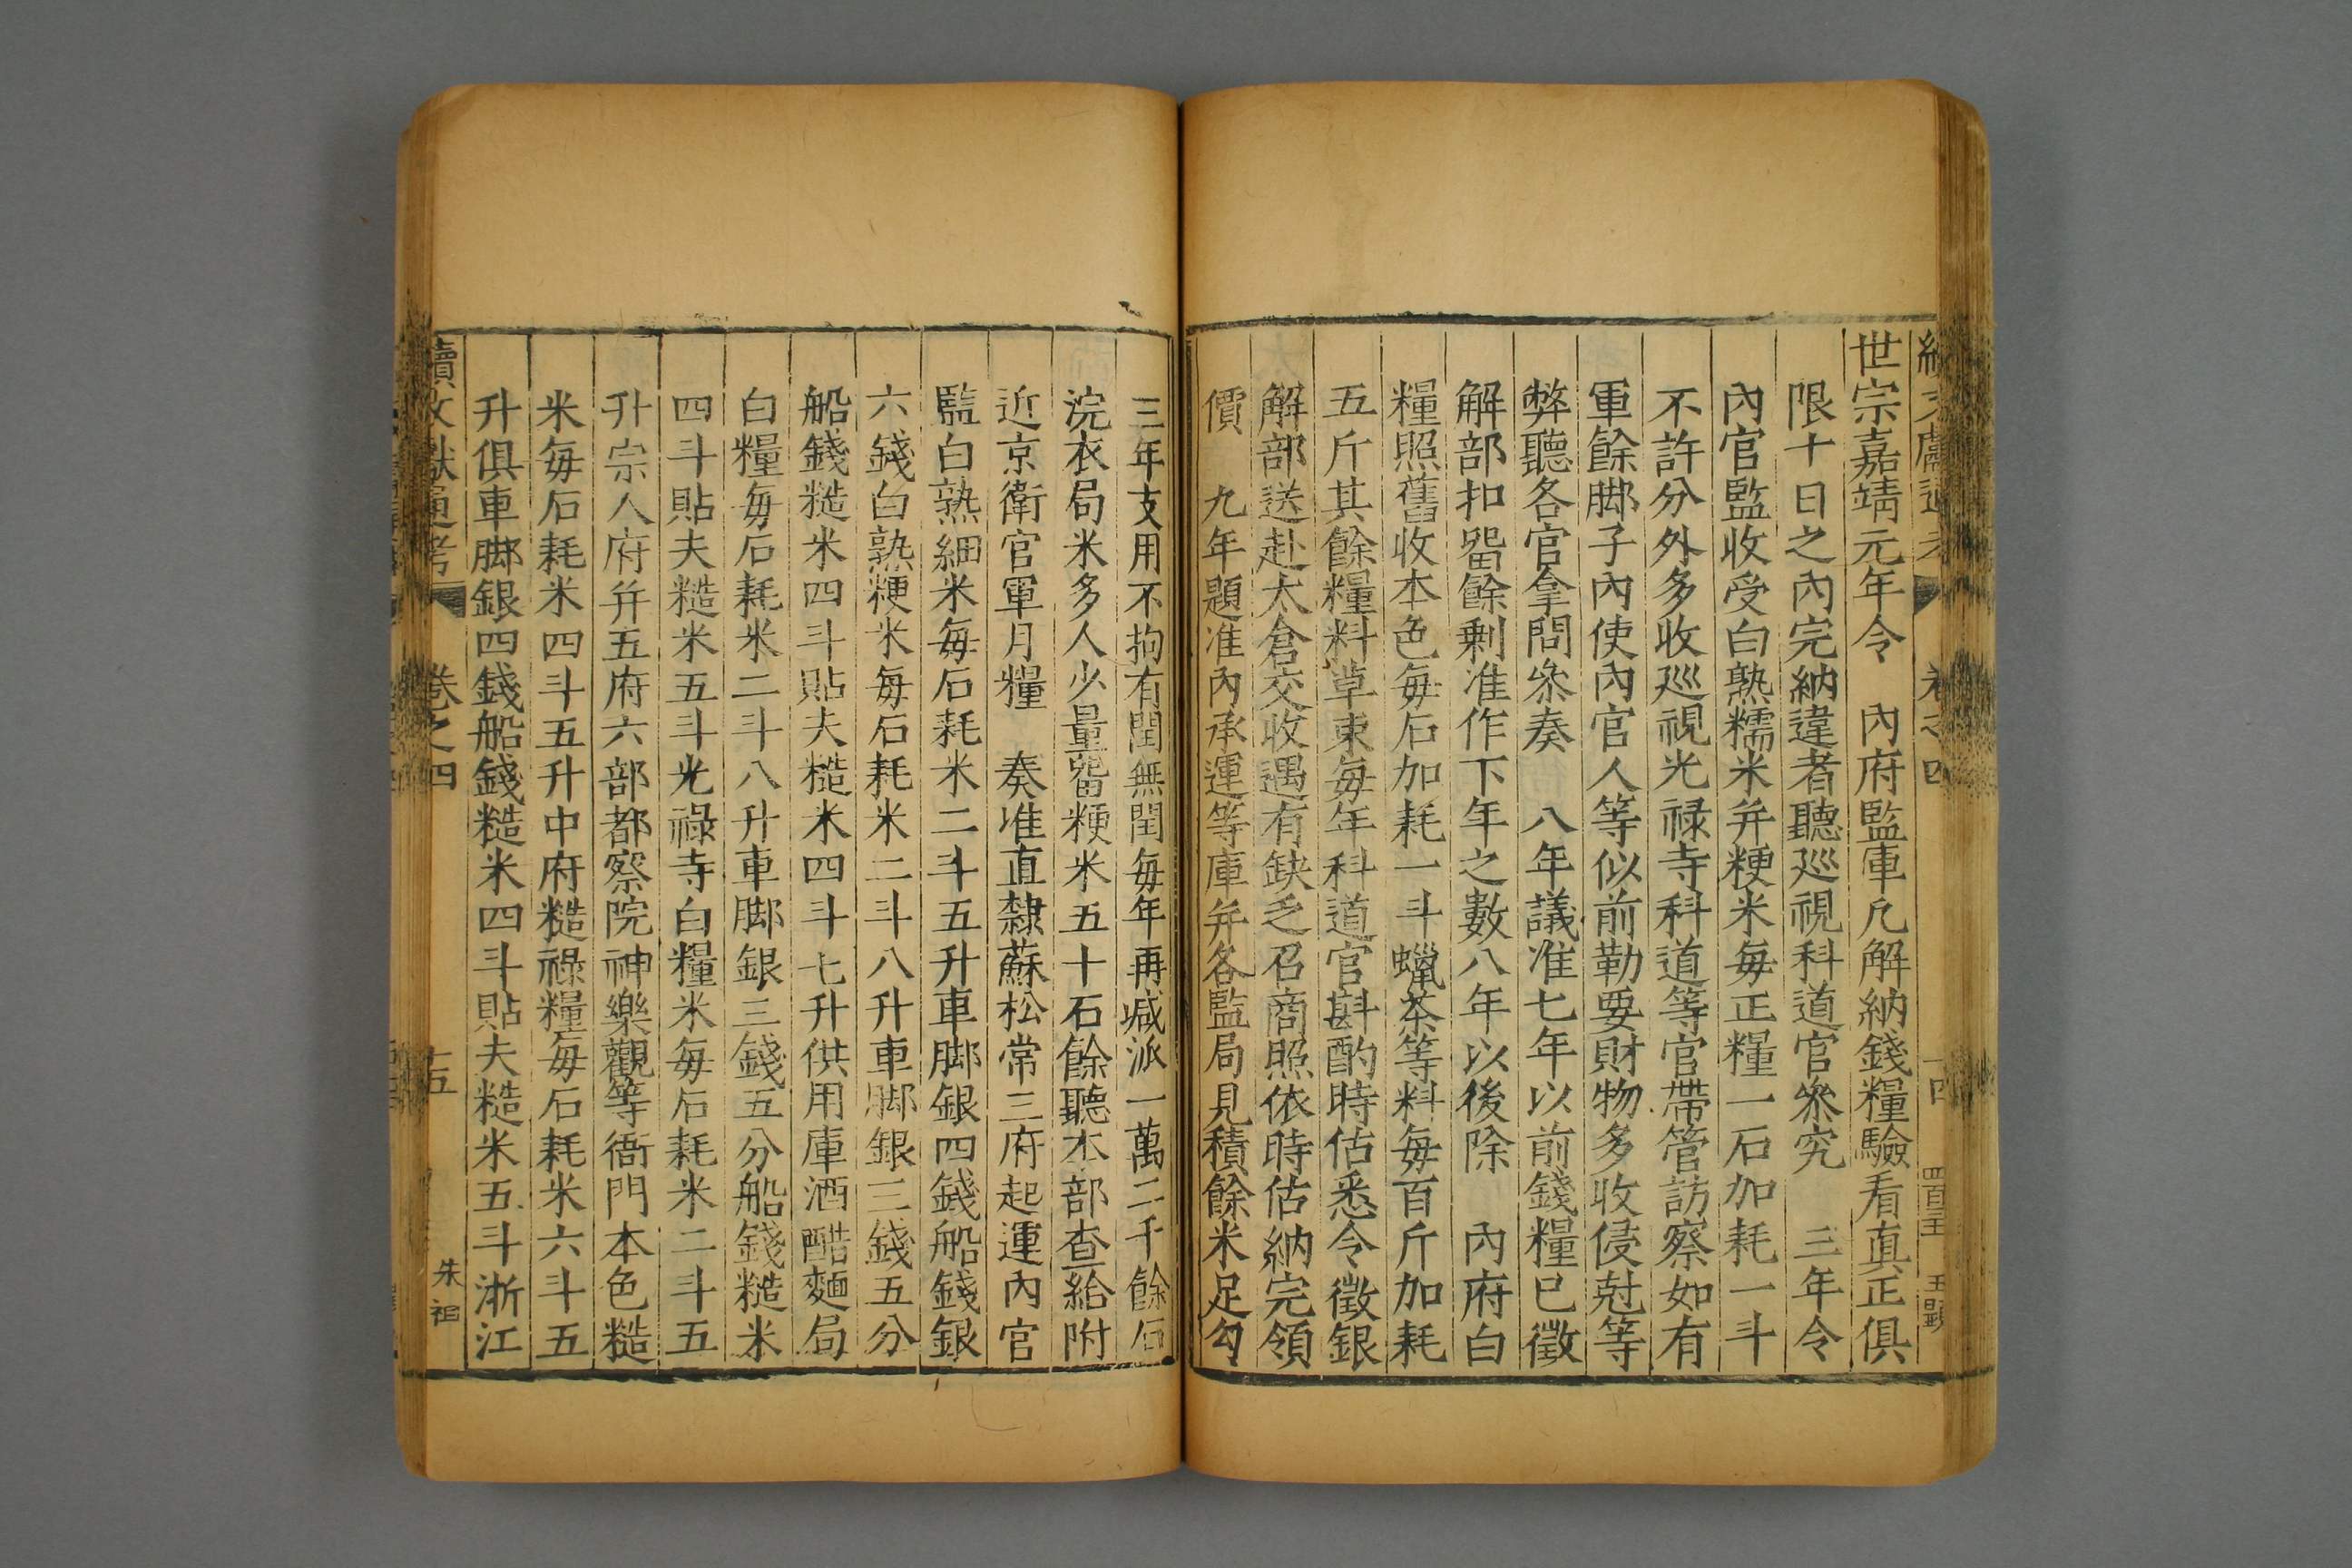 世宗嘉靖元年令　內府監庫凡解納錢糧驗看真正俱
限十日之內完納違者聽巡視科道官叅究　三年令
內官監收受白熟糯米并粳米每正糧一石加耗一斗
不許分外多收巡視光祿寺科道等官帶管訪察如有
軍餘脚子內使內官人等似前勒要財物多收侵尅等
弊聽各官拿問叅奏　八年議准七年以前錢糧已徵
解部扣留餘剩准作下年之數八年以後除　內府白
糧照舊收本色每石加耗一斗蠟茶等料每百斤加耗
五斤其餘糧料草束每年科道官斟酌時估悉令徵銀
解部送赴太倉交收遇有缺乏召商照依時估納完領
價　九年題准內承運等庫并各監局見積餘米足勾
三年支用不拘有閏無閏每年再减派一萬二千餘石
浣衣局米多人少量留粳米五十石餘聽本部查給附
近京衛官軍月糧　奏准直隸蘇松常三府起運內官
監白熟細米每石耗米二斗五升車脚銀四錢船錢銀
六錢白熟粳米每石耗米二斗八升車脚銀三錢五分
船錢糙米四斗貼夫糙米四斗七升供用庫酒醋麵局
白糧每石耗米二斗八升車脚銀三錢五分船錢糙米
四斗貼夫糙米五斗光祿寺白糧米每石耗米二斗五
升宗人府并五府六部都察院神樂觀等衙門本色糙
米每石耗米四斗五升中府糙祿糧每石耗米六斗五
升俱車脚銀四錢船錢糙米四斗貼夫糙米五斗浙江
續文獻通考　卷之四　十五　朱祖